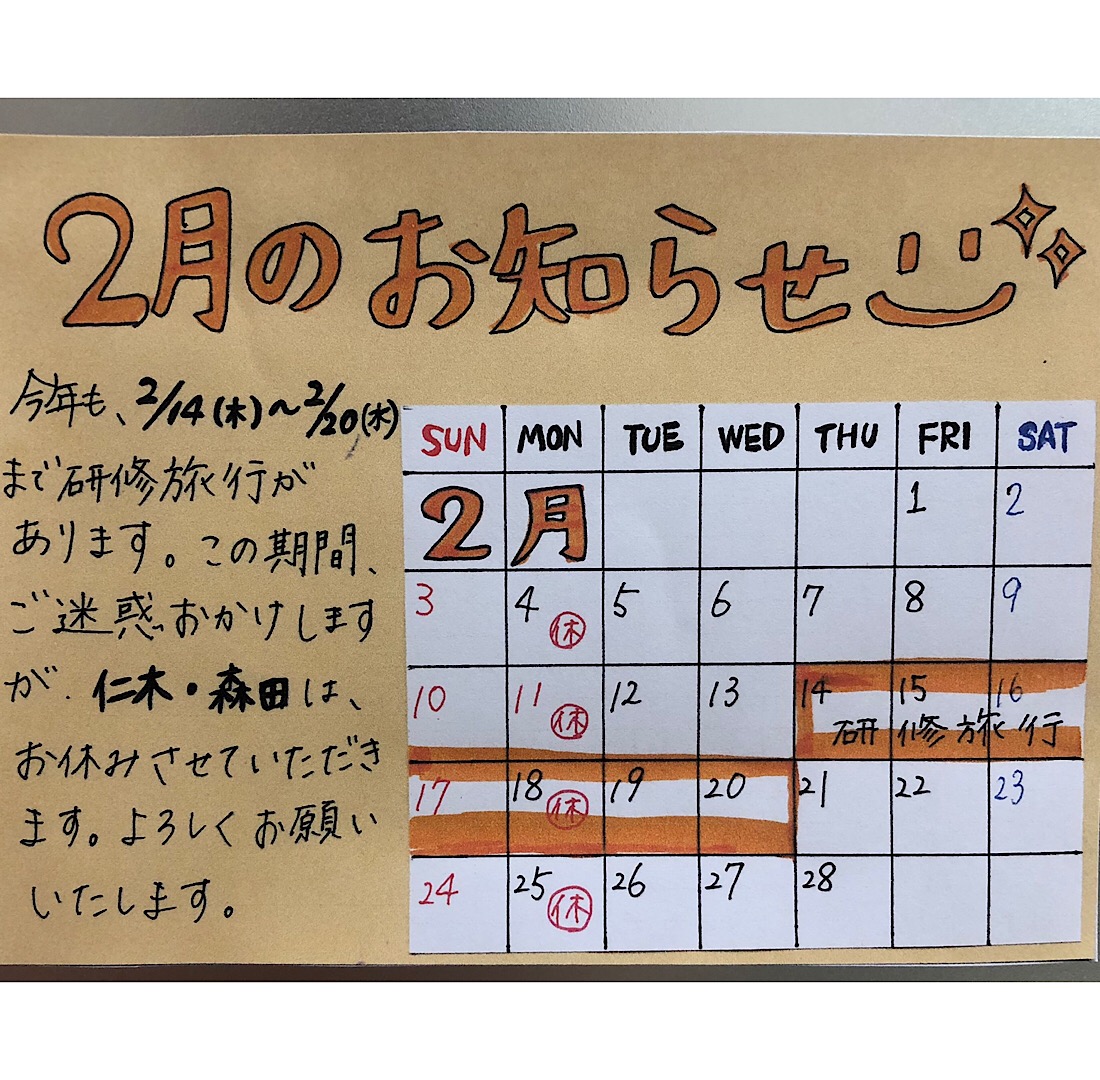 2月のお知らせ
今年も、2/14(木)〜2/20(水)
まで研修旅行が
あります。この期間、
ご迷惑おかけします
が、仁木・森田は、
お休みさせていただき
ます。よろしくお願い
いたします。
SUN MON TUE WED THU FRI SAT
2月 1 2
3 4 休 5 6 7 8 9
10 11 休 12 13 14 15 16
研修旅行
17 18 休 19 20 21 22 23
24 25 休 26 27 28